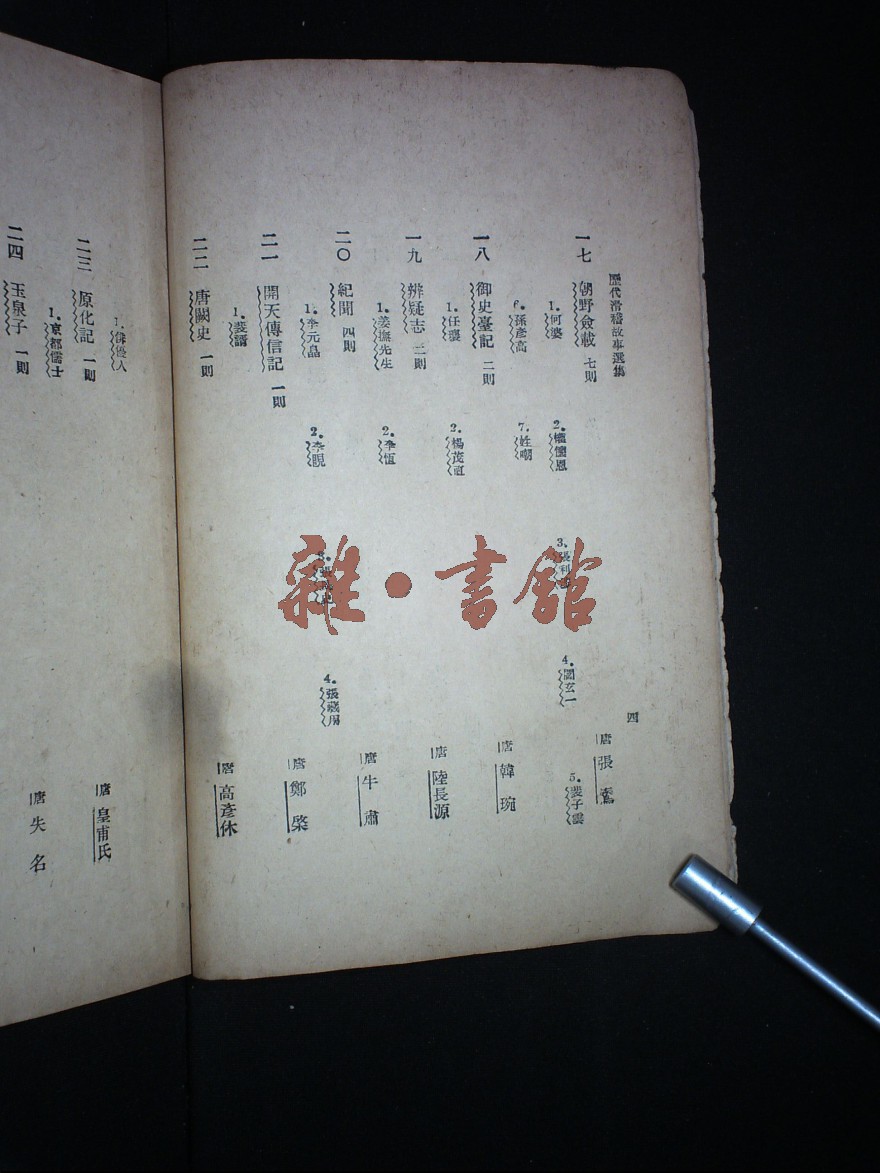 歷代滑稽故事選集
四
一七 朝野僉載 七則 唐 張鷟
1.何婆 2.權懷恩 4.閻玄一 5.裴子雲
6.孫彥高 7.姓嘲
一八 御史臺記 二則 唐 韓琬
1.任瓌 2.楊茂直
一九 辨疑志 二則 唐 陸長源
1.姜撫先生 2.李恆
二〇 紀聞 四則 唐 牛肅
1.李元皛 2.李睍 4.張藏用
二一 開天傳信記 一則 唐 鄭棨
1.裴諝
二二 唐闕史 一則 唐 高彥休
1.俳優人
二三 原化記 一則 唐 皇甫氏
1.京都儒士
二四 玉泉子 一則 唐 失名
雜·書館